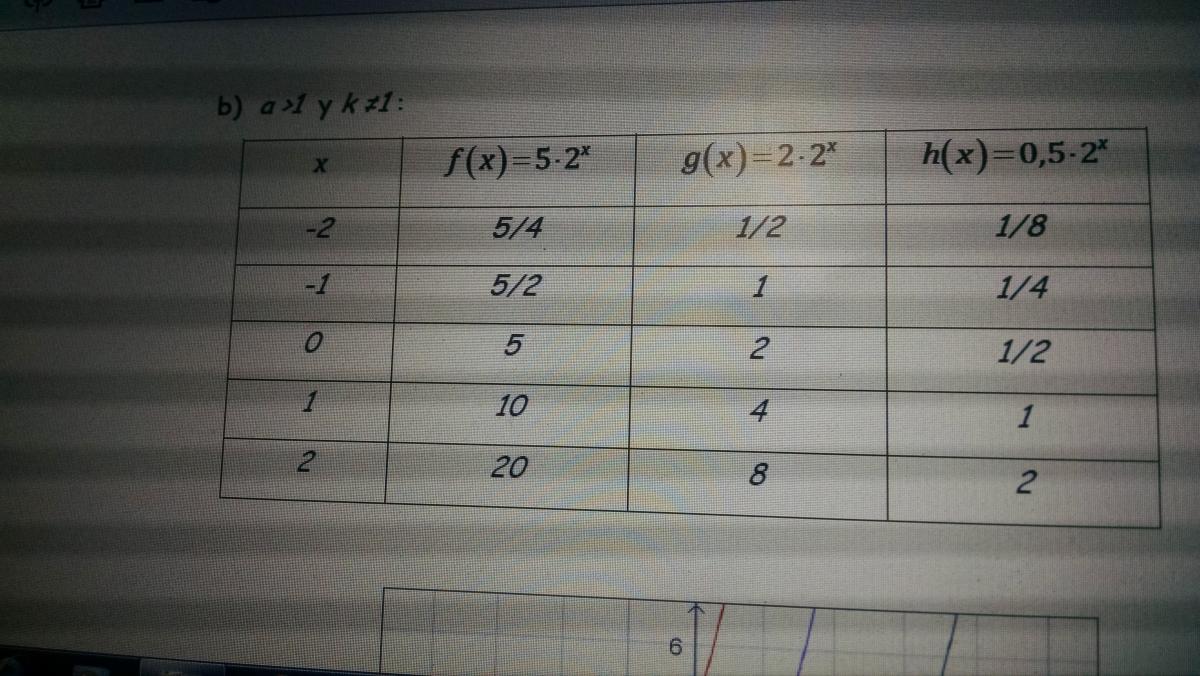 b) a>1 y k≠1:
x f(x)=5·2ˣ g(x)=2·2ˣ h(x)=0,5·2ˣ
-2 5/4 1/2 1/8
-1 5/2 1 1/4
0 5 2 1/2
1 10 4 1
2 20 8 2
6